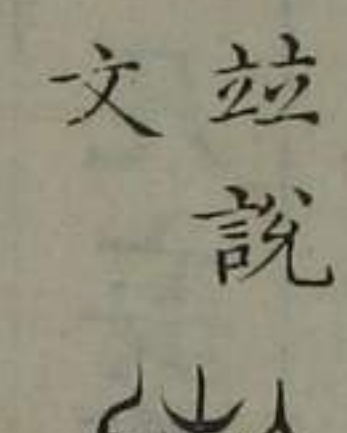 竝說
文